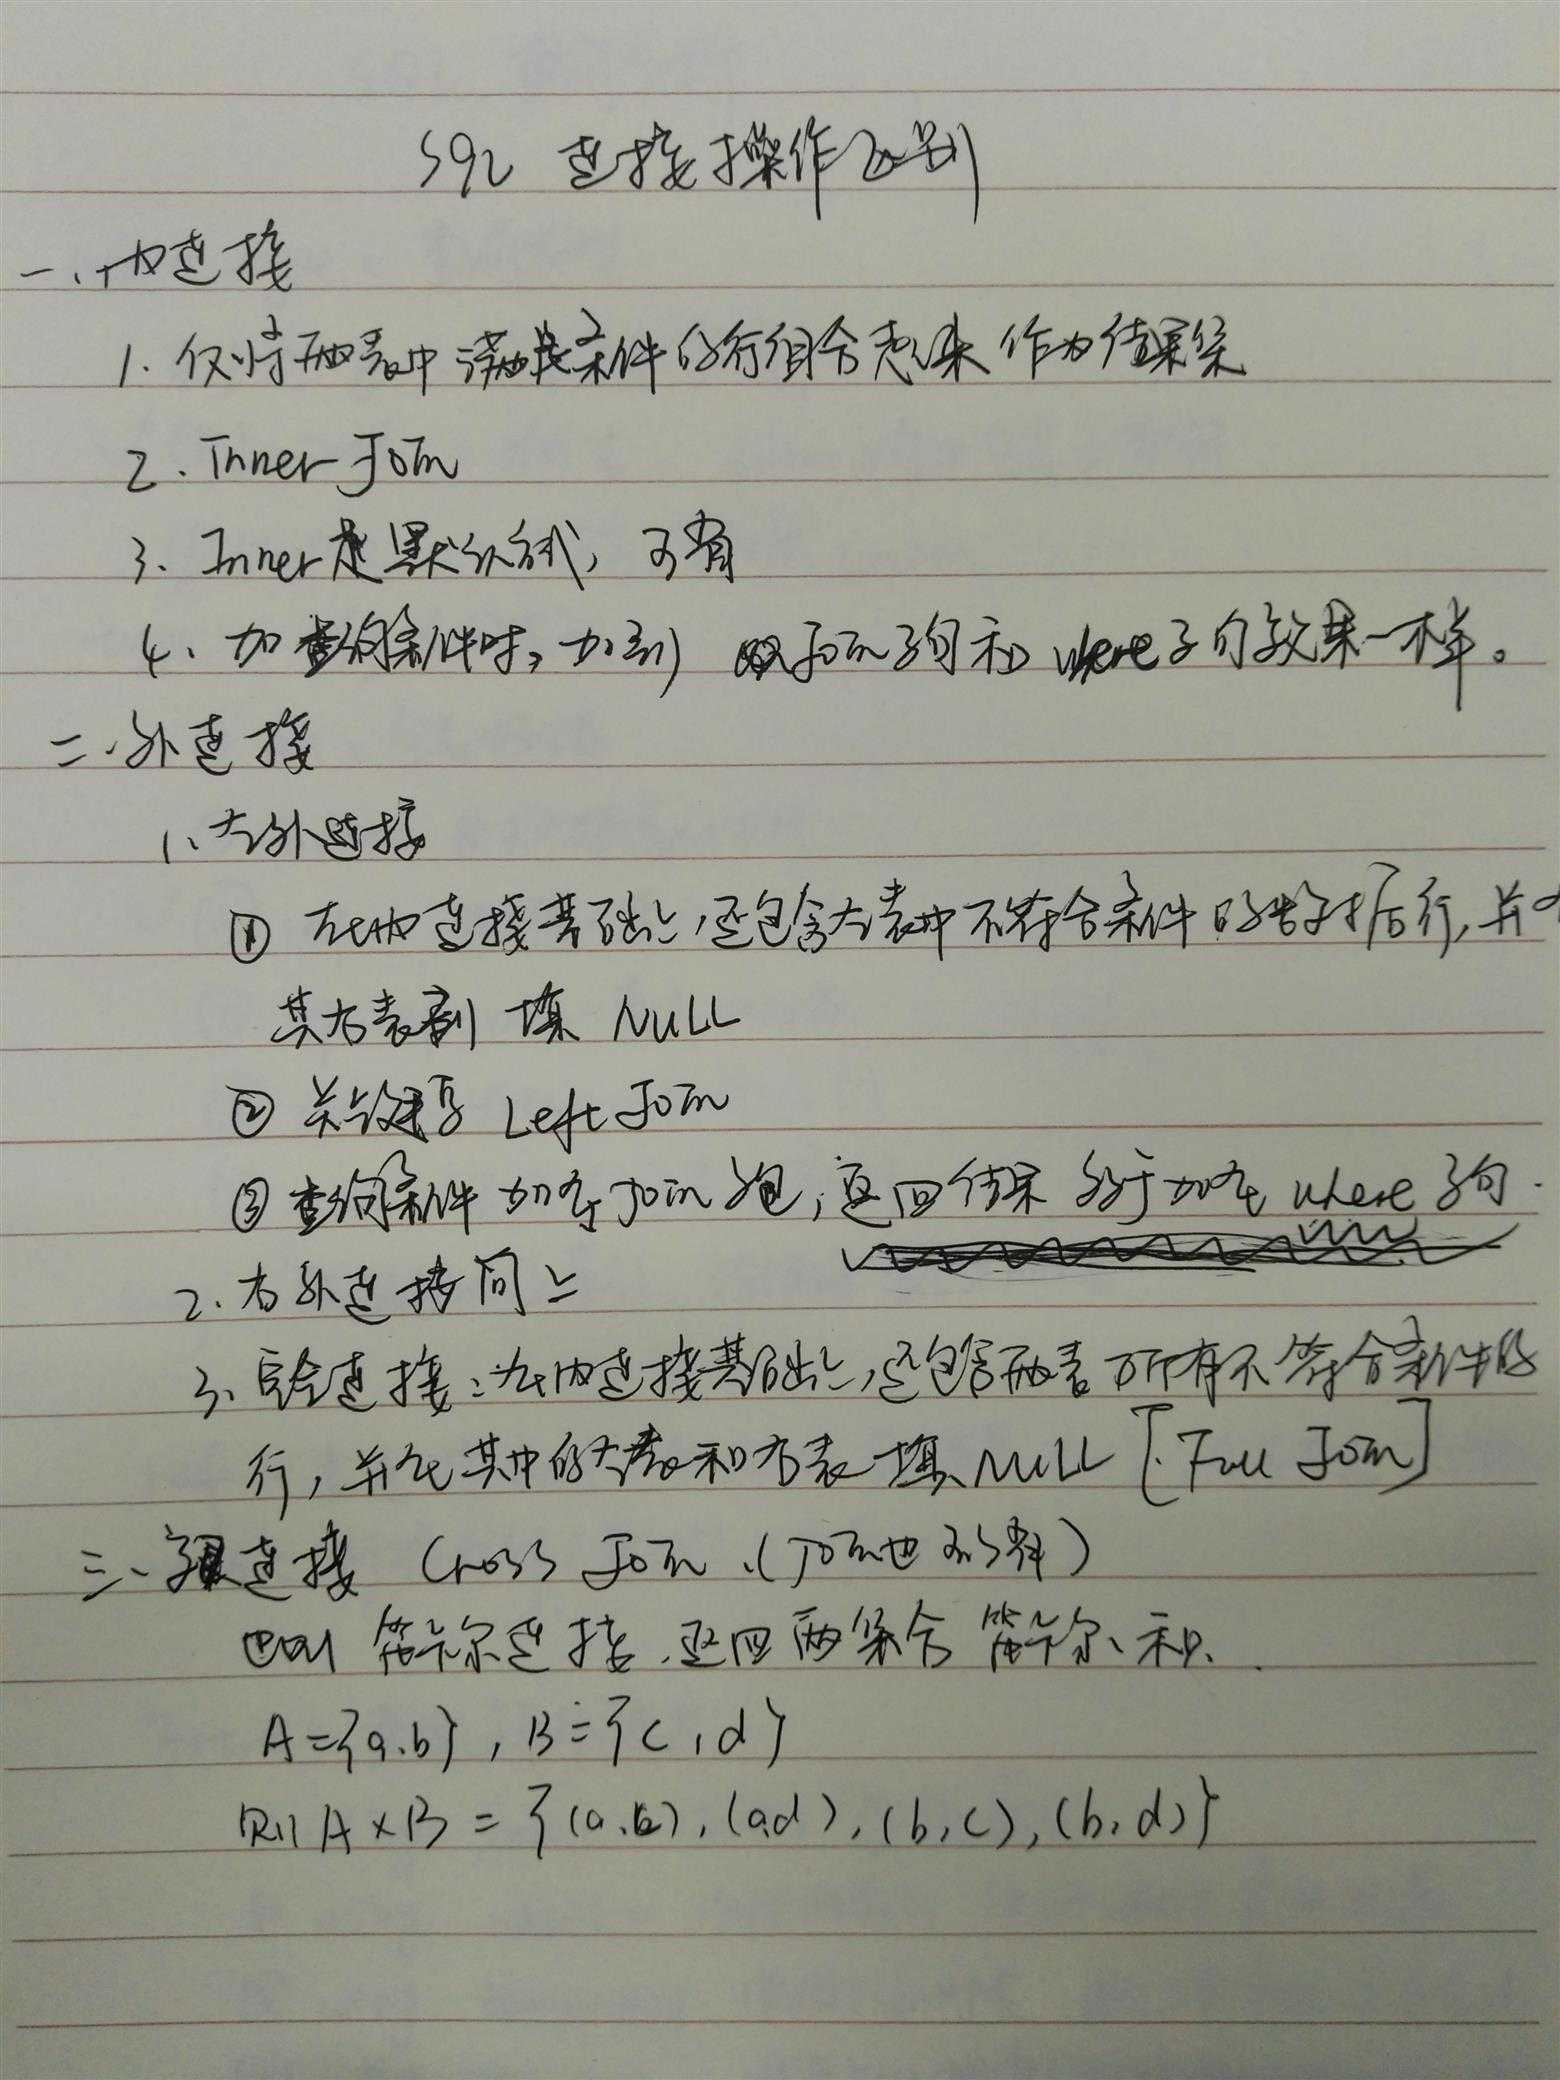 SQL 连接操作区别
一、内连接
1. 仅将两表中满足条件的行组合起来作为结果集
2. Inner Join
3. Inner是默认方式，可省
4、加查询条件时，加到 Join子句和 where子句效果一样。
二、外连接
1、左外连接
① 在内连接基础上，还包含左表中不符合条件的数据行，并在
其右表列 填 NULL
② 关键字 Left Join
③ 查询条件加在Join子句，返回结果 多于加在 where 子句.
2、右外连接同上
3、完全连接：在内连接基础上，还包含两表所有不符合条件的
行，并在其中的左表和右表填 NULL [Full Join]
三、交叉连接 Cross Join (Join也可以省)
笛卡尔连接，返回两集合 笛卡尔积.
A={a.b}，B={c,d}
则 A×B = {(a.c), (a,d), (b,c), (b,d)}